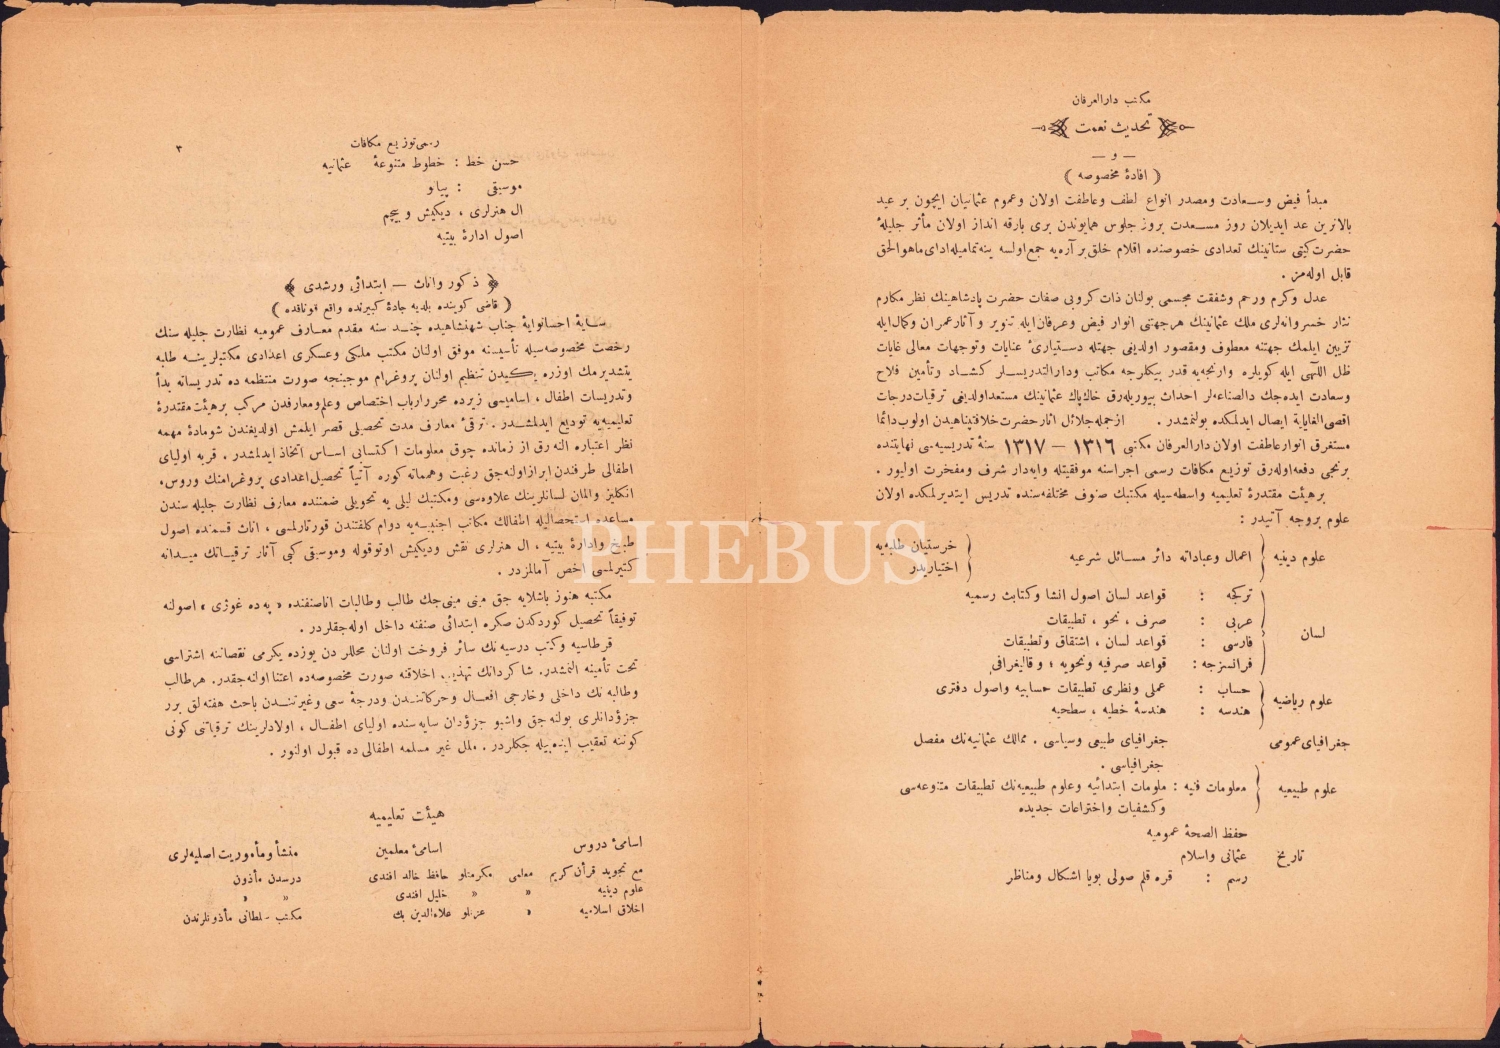 مكتب دارالعرفان
تحدیث نعمت
— و —
( افادۀ مخصوصه )
مبدأ فیض وسعادت ومصدر انواع لطف وعاطفت اولان وعموم عثمانیان ایچون بر عید
بالاترین عد ایدیلان روز مسعدت بروز جلوس همایوندن بری بارقه انداز اولان مآثر جلیلۀ
حضرت كیتی ستانینك تعدادی خصوصنده اقلام خلق بر آره‌یه جمع اولسه ینه تمامیله ادای ماهوالحق
قابل اوله‌مز .
عدل وكرم ورحم وشفقت مجسمی بولنان ذات كروبی صفات حضرت پادشاهینك نظر مكارم
نثار خسروانه‌لری ملك عثمانینك هر جهتنی انوار فیض وعرفان ایله تنویر و آثار عمران وكمال ایله
تزیین ایلمك جهتنه معطوف ومقصور اولدیغی جهتله دستیاریٔ عنایات وتوجهات معالی غایات
ظل اللهی ایله كویلره وارنجه‌یه قدر بیكلرجه مكاتب ودارالتدریسلر كشاد وتأمین فلاح
وسعادت ایده‌جك دالصناعه‌لر احداث بیوریله‌رق خاك پاك عثمانینك مستعد اولدیغی ترقیات درجات
اقصی الغایایه ایصال ایدلمكده بولنمشدر . ازجمله جلائل آثار حضرت خلافتپناهیدن اولوب دائما
مستغرق انوار عاطفت اولان دارالعرفان مكتبی ١٣١٦ — ١٣١٧ سنۀ تدریسیه‌سی نهایتنده
برنجی دفعه اوله‌رق توزیع مكافات رسمی اجراسنه موفقیتله وایه‌دار شرف ومفخرت اولیور .
بر هیئت مقتدرۀ تعلیمیه واسطه‌سیله مكتبك صنوف مختلفه‌سنده تدریس ایتدیرلمكده اولان
علوم بروجه آتیدر :
علوم دینیه { اعمال وعباداته دائر مسائل شرعیه { خرستیان طلبه‌یه
اختیاریدر
تركجه : قواعد لسان اصول انشا وكتابت رسمیه
عربی : صرف ، نحو ، تطبیقات
لسان
فارسی : قواعد لسان ، اشتقاق وتطبیقات
فرانسزجه : قواعد صرفیه ونحویه ؛ وقالیغرافی
حساب : عملی ونظری تطبیقات حسابیه واصول دفتری
علوم ریاضیه
هندسه : هندسۀ خطیه ، سطحیه
جغرافیای عمومی جغرافیای طبیعی وسیاسی . ممالك عثمانیه‌نك مفصل
جغرافیاسی .
علوم طبیعیه { معلومات فنیه : ملومات ابتدائیه وعلوم طبیعیه‌نك تطبیقات متنوعه‌سی
وكشفیات واختراعات جدیده
حفظ الصحۀ عمومیه
تاریخ عثمانی واسلام
رسم : قره قلم صولی بویا اشكال ومناظر
رسمی توزیع مكافات ٣
حسن خط : خطوط متنوعۀ عثمانیه
موسیقی : پیانو
ال هنرلری ، دیكیش و بیچم
اصول ادارۀ بیتیه
﴿ ذكور واناث — ابتدائی ورشدی ﴾
( قاضی كوینده بلدیه جادۀ كبیرنده واقع قوناقده )
سایۀ احسانوایۀ جناب شهنشاهیده چند سنه مقدم معارف عمومیه نظارت جلیله سنك
رخصت مخصوصه‌سیله تأسیسنه موفق اولنان مكتب ملكی وعسكری اعدادی مكتبلرینه طلبه
یتشدیرمك اوزره یكیدن تنظیم اولنان پروغرام موجبنجه صورت منتظمه ده تدریساته بدأ
وتدریسات اطفال ، اسامیسی زیرده محرر ارباب اختصاص وعلم ومعارفدن مركب بر هیئت مقتدرۀ
تعلیمیه‌یه تودیع ایدلمشدر . ترقیٔ معارف مدت تحصیلی قصر ایلمش اولدیغندن شومادۀ مهمه
نظر اعتباره النه رق از زمانده چوق معلومات اكتسابی اساس اتخاذ ایدلمشدر . قریه اولیای
اطفالی طرفندن ابراز اولنه‌جق رغبت وهمماته كوره آتیاً تحصیل اعدادی پروغرامنك وروس،
انكلیز والمان لسانلرینك علاوه‌سی ومكتبك لیلی یه تحویلی ضمننده معارف نظارت جلیله سندن
مساعده استحصالیله اطفالك مكاتب اجنبیه‌یه دوام كلفتندن قورتارلمسی ، اناث قسمنده اصول
طبخ وادارۀ بیتیه ، ال هنرلری نقش ودیكیش اوتوقوله وموسیقی كبی آثار ترقیاتك میدانه
كتیرلمسی اخص آمالمزدر .
مكتبه هنوز باشلایه جق منی منی‌جك طالب وطالبات اناصنفنده « یه‌ده غوژی » اصولنه
توفیقاً تحصیل كوردكدن صكره ابتدائی صنفنه داخل اوله‌جقلردر .
قرطاسیه وكتب درسیه نك سائر فروخت اولنان محللر دن یوزده یكرمی نقصاننه اشتراسی
تحت تأمینه النمشدر . شاكردانك تهذیب اخلاقنه صورت مخصوصه‌ده اعتنا اوله‌جقدر . هر طالب
وطالبه نك داخلی وخارجی افعال وحركاتندن ودرجۀ سعی وغیرتندن باحث هفته لق برر
جزؤدانلری بولنه جق واشبو جزؤدان سایه سنده اولیای اطفال ، اولادلرینك ترقیاتنی كونی
كوننه تعقیب ایده‌بیله جكلردر . ملل غیر مسلمه اطفالی ده قبول اولنور .
هیئت تعلیمیه
اسامیٔ دروس اسامیٔ معلمین منشأ ومأموریت اصلیه‌لری
مع تجوید قرآن كریم معلمی مكرمتلو حافظ خالد افندی درسدن مأذون
علوم دینیه » » خلیل افندی » »
اخلاق اسلامیه » عزتلو علاءالدین بك مكتب سلطانی مأذونلرندن
PHEBUS